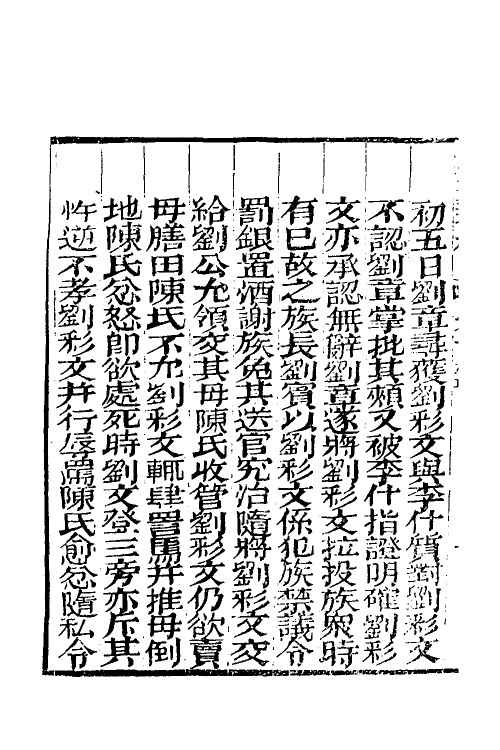 初五日劉章尋獲劉彩文與李什質對劉彩文
不認劉章掌批其頰又被李什指證明確劉彩
文亦承認無辭劉章遂將劉彩文拉投族眾時
有已故之族長劉賓以劉彩文係犯族禁議令
罰銀置酒謝族免其送官究治隨將劉彩文交
給劉公允領交其母陳氏收管劉彩文仍欲賣
母膳田陳氏不允劉彩文輒肆詈罵并推母倒
地陳氏忿怒即欲處死時劉文登三旁亦斥其
忤逆不孝劉彩文并行辱罵陳氏愈忿隨私令